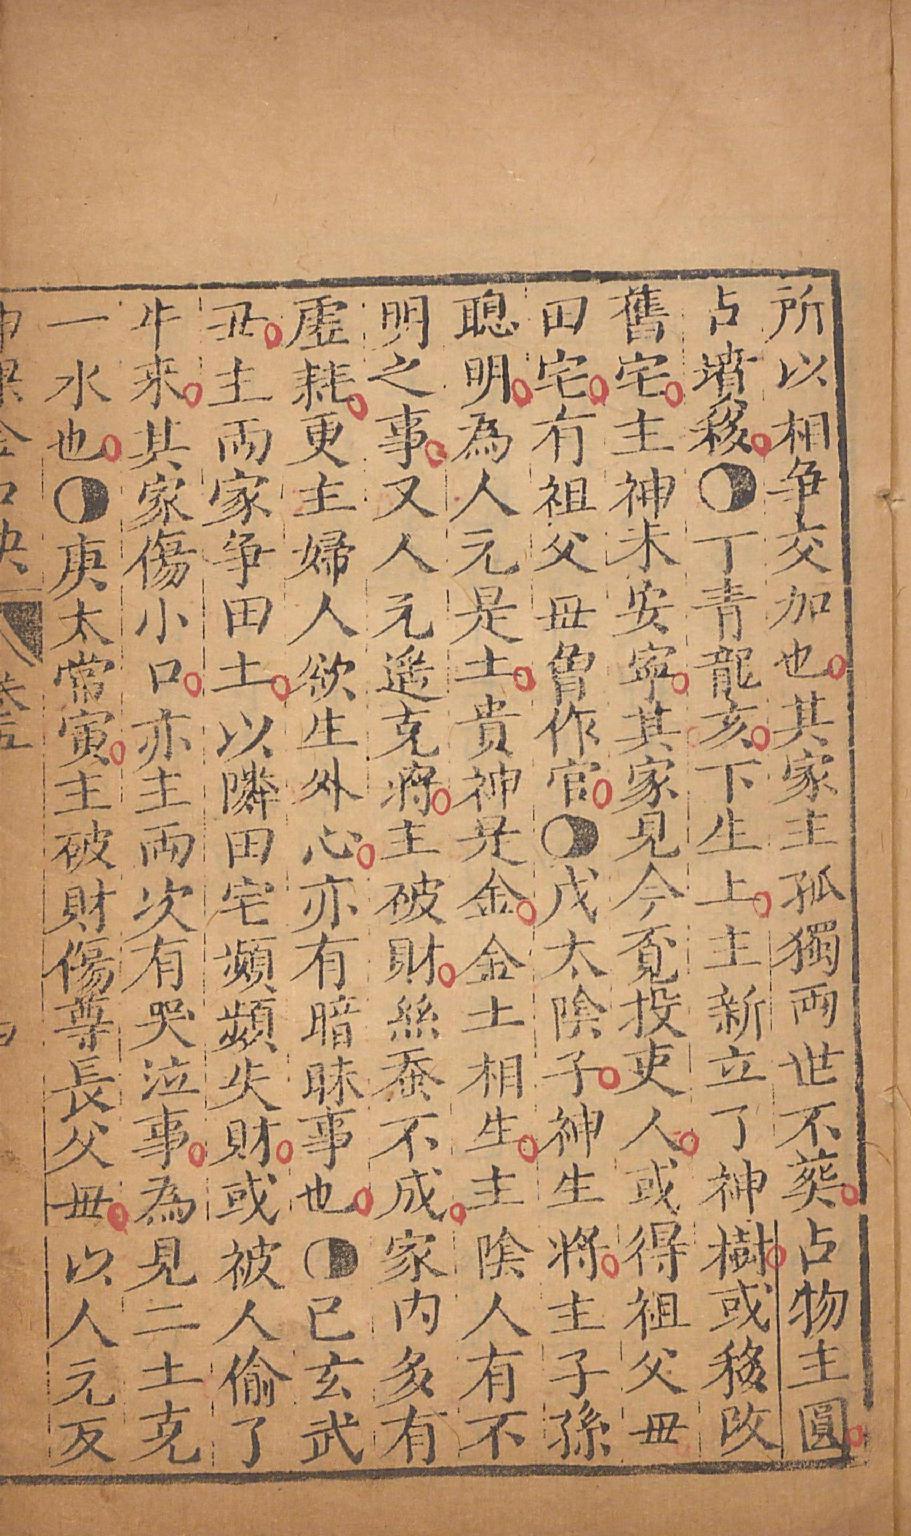 所以相争交加也其家主孤獨兩世不葵占物主圓
占墳移丁青龍亥下生上主新立了神樹或移改
舊宅主神未安寧其家見今覔投吏人或得祖父毋
田宅有祖父毋曽作官戊太陰子神生將主子孫
聰明為人元是土貴神是金金土相生主陰人有不
明之事又人元遥克將主破財絲蚕不成家内多有
虛耗更主婦人欲生外心亦有暗昧事也已玄武
丑主兩家争田土以隣田宅頻頻失財或被人偷了
牛来其家傷小口亦主兩次有哭泣事為見二土克
一水也庚太常寅主破財傷尊長父毋以人元反
神課金口訣 卷五